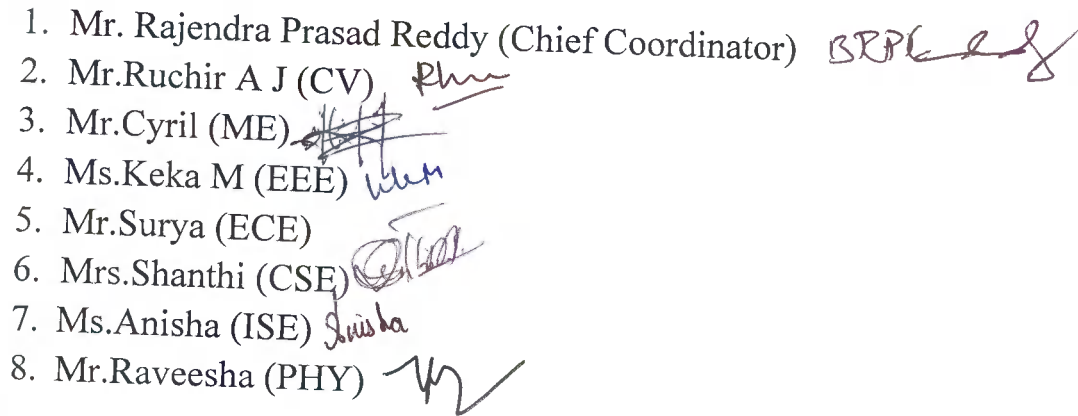 1. Mr. Rajendra Prasad Reddy (Chief Coordinator) BRPReddy
2. Mr.Ruchir A J (CV)
3. Mr.Cyril (ME)
4. Ms.Keka M (EEE)
5. Mr.Surya (ECE)
6. Mrs.Shanthi (CSE)
7. Ms.Anisha (ISE) Anisha
8. Mr.Raveesha (PHY)